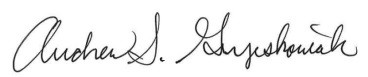 Andrew S. Gryeshowiak